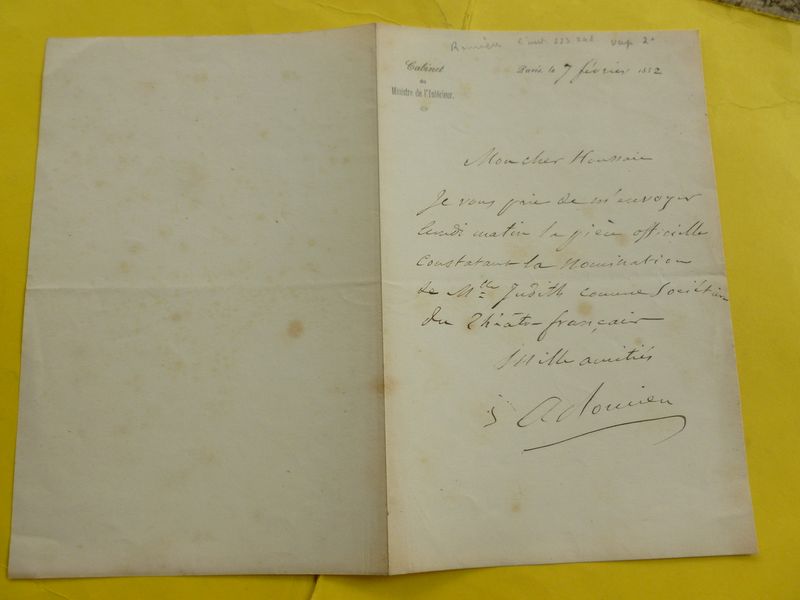 Cabinet
du
Ministre de l'Intérieur.
Paris le 7 février 1852
Mon cher Houssaie
Je vous prie de m'envoyer
lundi matin la pièce officielle
constatant la nomination
de Mlle Judith comme Sociétaire
du Théâtre-français
Mille amitiés